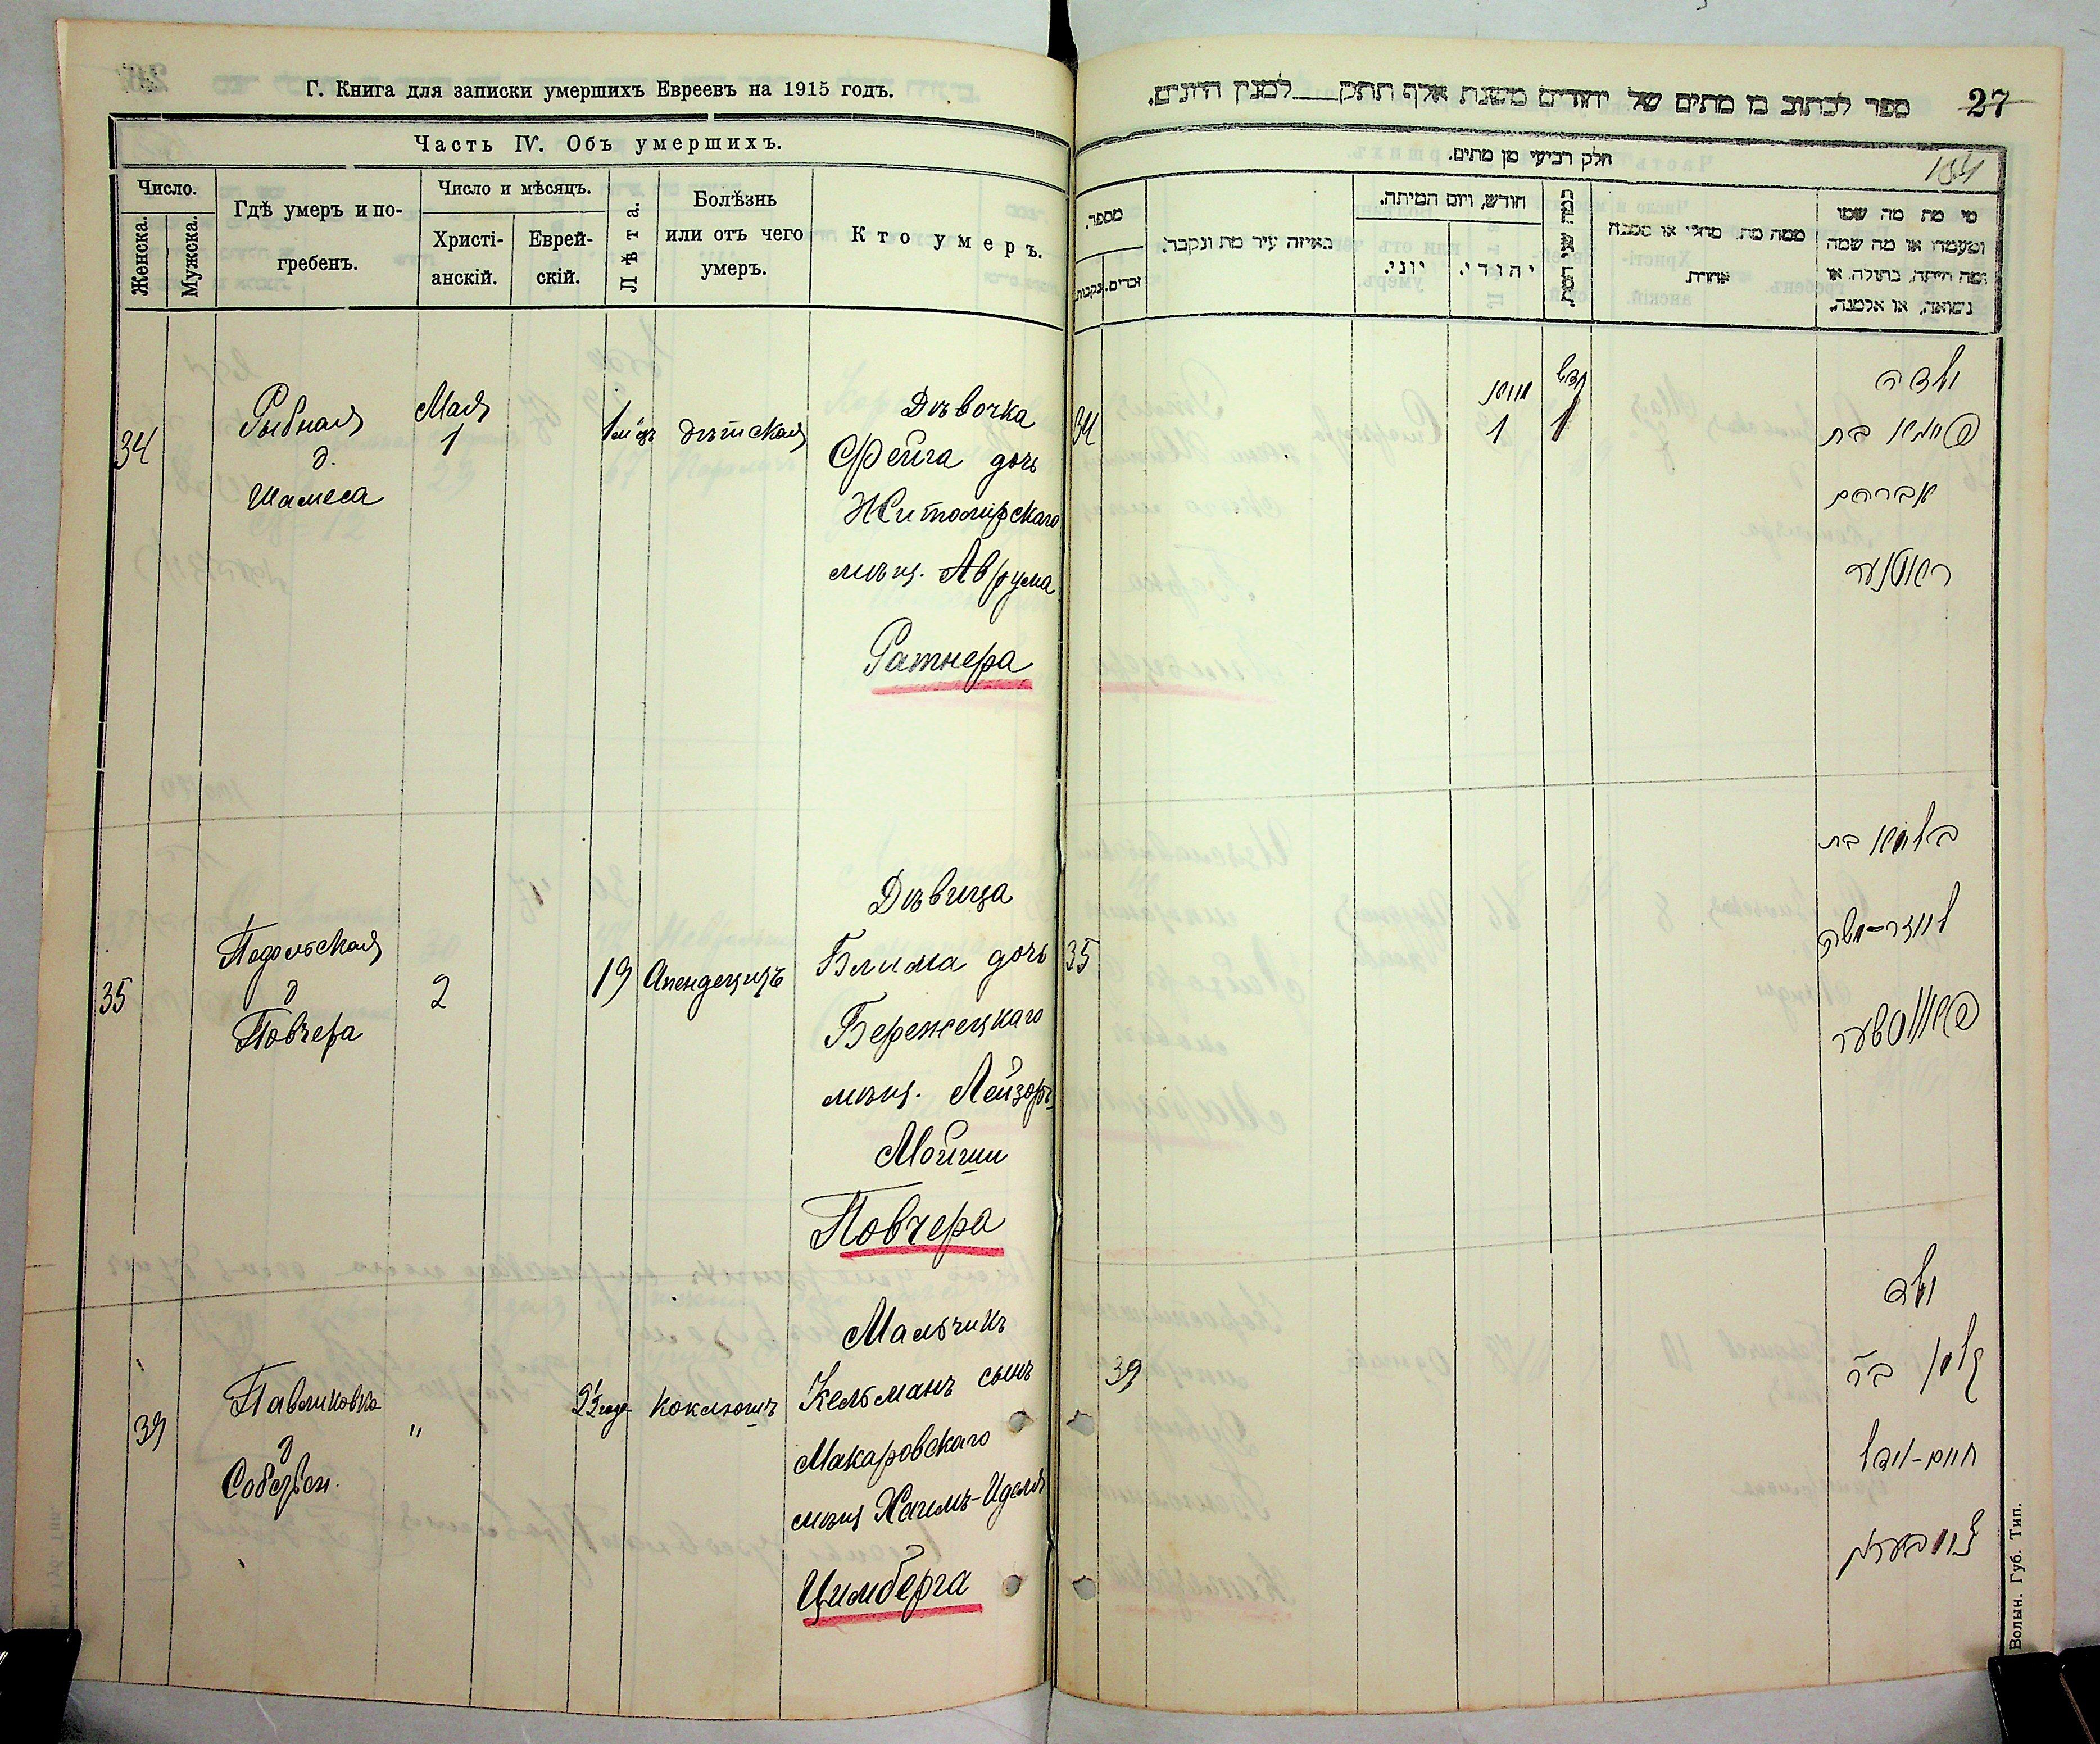 Г. Книга для записки умершихъ Евреевъ на 1915 годъ.
Часть IV. Объ умершихъ.
Число.
Женска.
Мужска.
Гдѣ умеръ и по-
гребенъ.
Число и мѣсяцъ.
Христі-
анскій.
Еврей-
скій.
Лѣта.
Болѣзнь
или отъ чего
умеръ.
Кто умеръ.
34
Рыбная
д.
Шамеса
Мая
1
1 м-цъ
дѣтская
Дѣвочка
Фейга дочь
Житомирскаго
мѣщ. Аврума
Ратнера
35
Подольская
д
Повчера
2
19
Апендецизъ
Дѣвица
Блима дочь
Бережецкаго
мѣщ. Лейзоръ
Мойши
Повчера
39
Павликовка
д
Собствен.
"
2½ года
коклюшъ
Мальчикъ
Кельманъ сынъ
Макаровскаго
мѣщ Хаимъ-Иделя
Цимберга
ספר לכתוב בו מתים של יהודים משנת אלף תתק למנין היונים.
27
חלק רביעי מן מתים.
184
מספר.
נקבות.
זכרים.
באיזה עיר מת ונקבר.
חודש, ויום המיתה.
יוני.
יהודי.
ממה מת. מחלי או מסבה
אחרת.
מי מת מה שמו
ומעמדו או מה שמה
ומה הייתה, בתולה. או
נשואה, או אלמנה.
34
1
חדש
1
ילדה
פייגא בת
אברהם
ראטנער
35
בלומא בת
ליזר-משה
פאווטשער
39
ילד
קלמן בר
חיים-יודל
צימבערג
Волын. Губ. Тип.